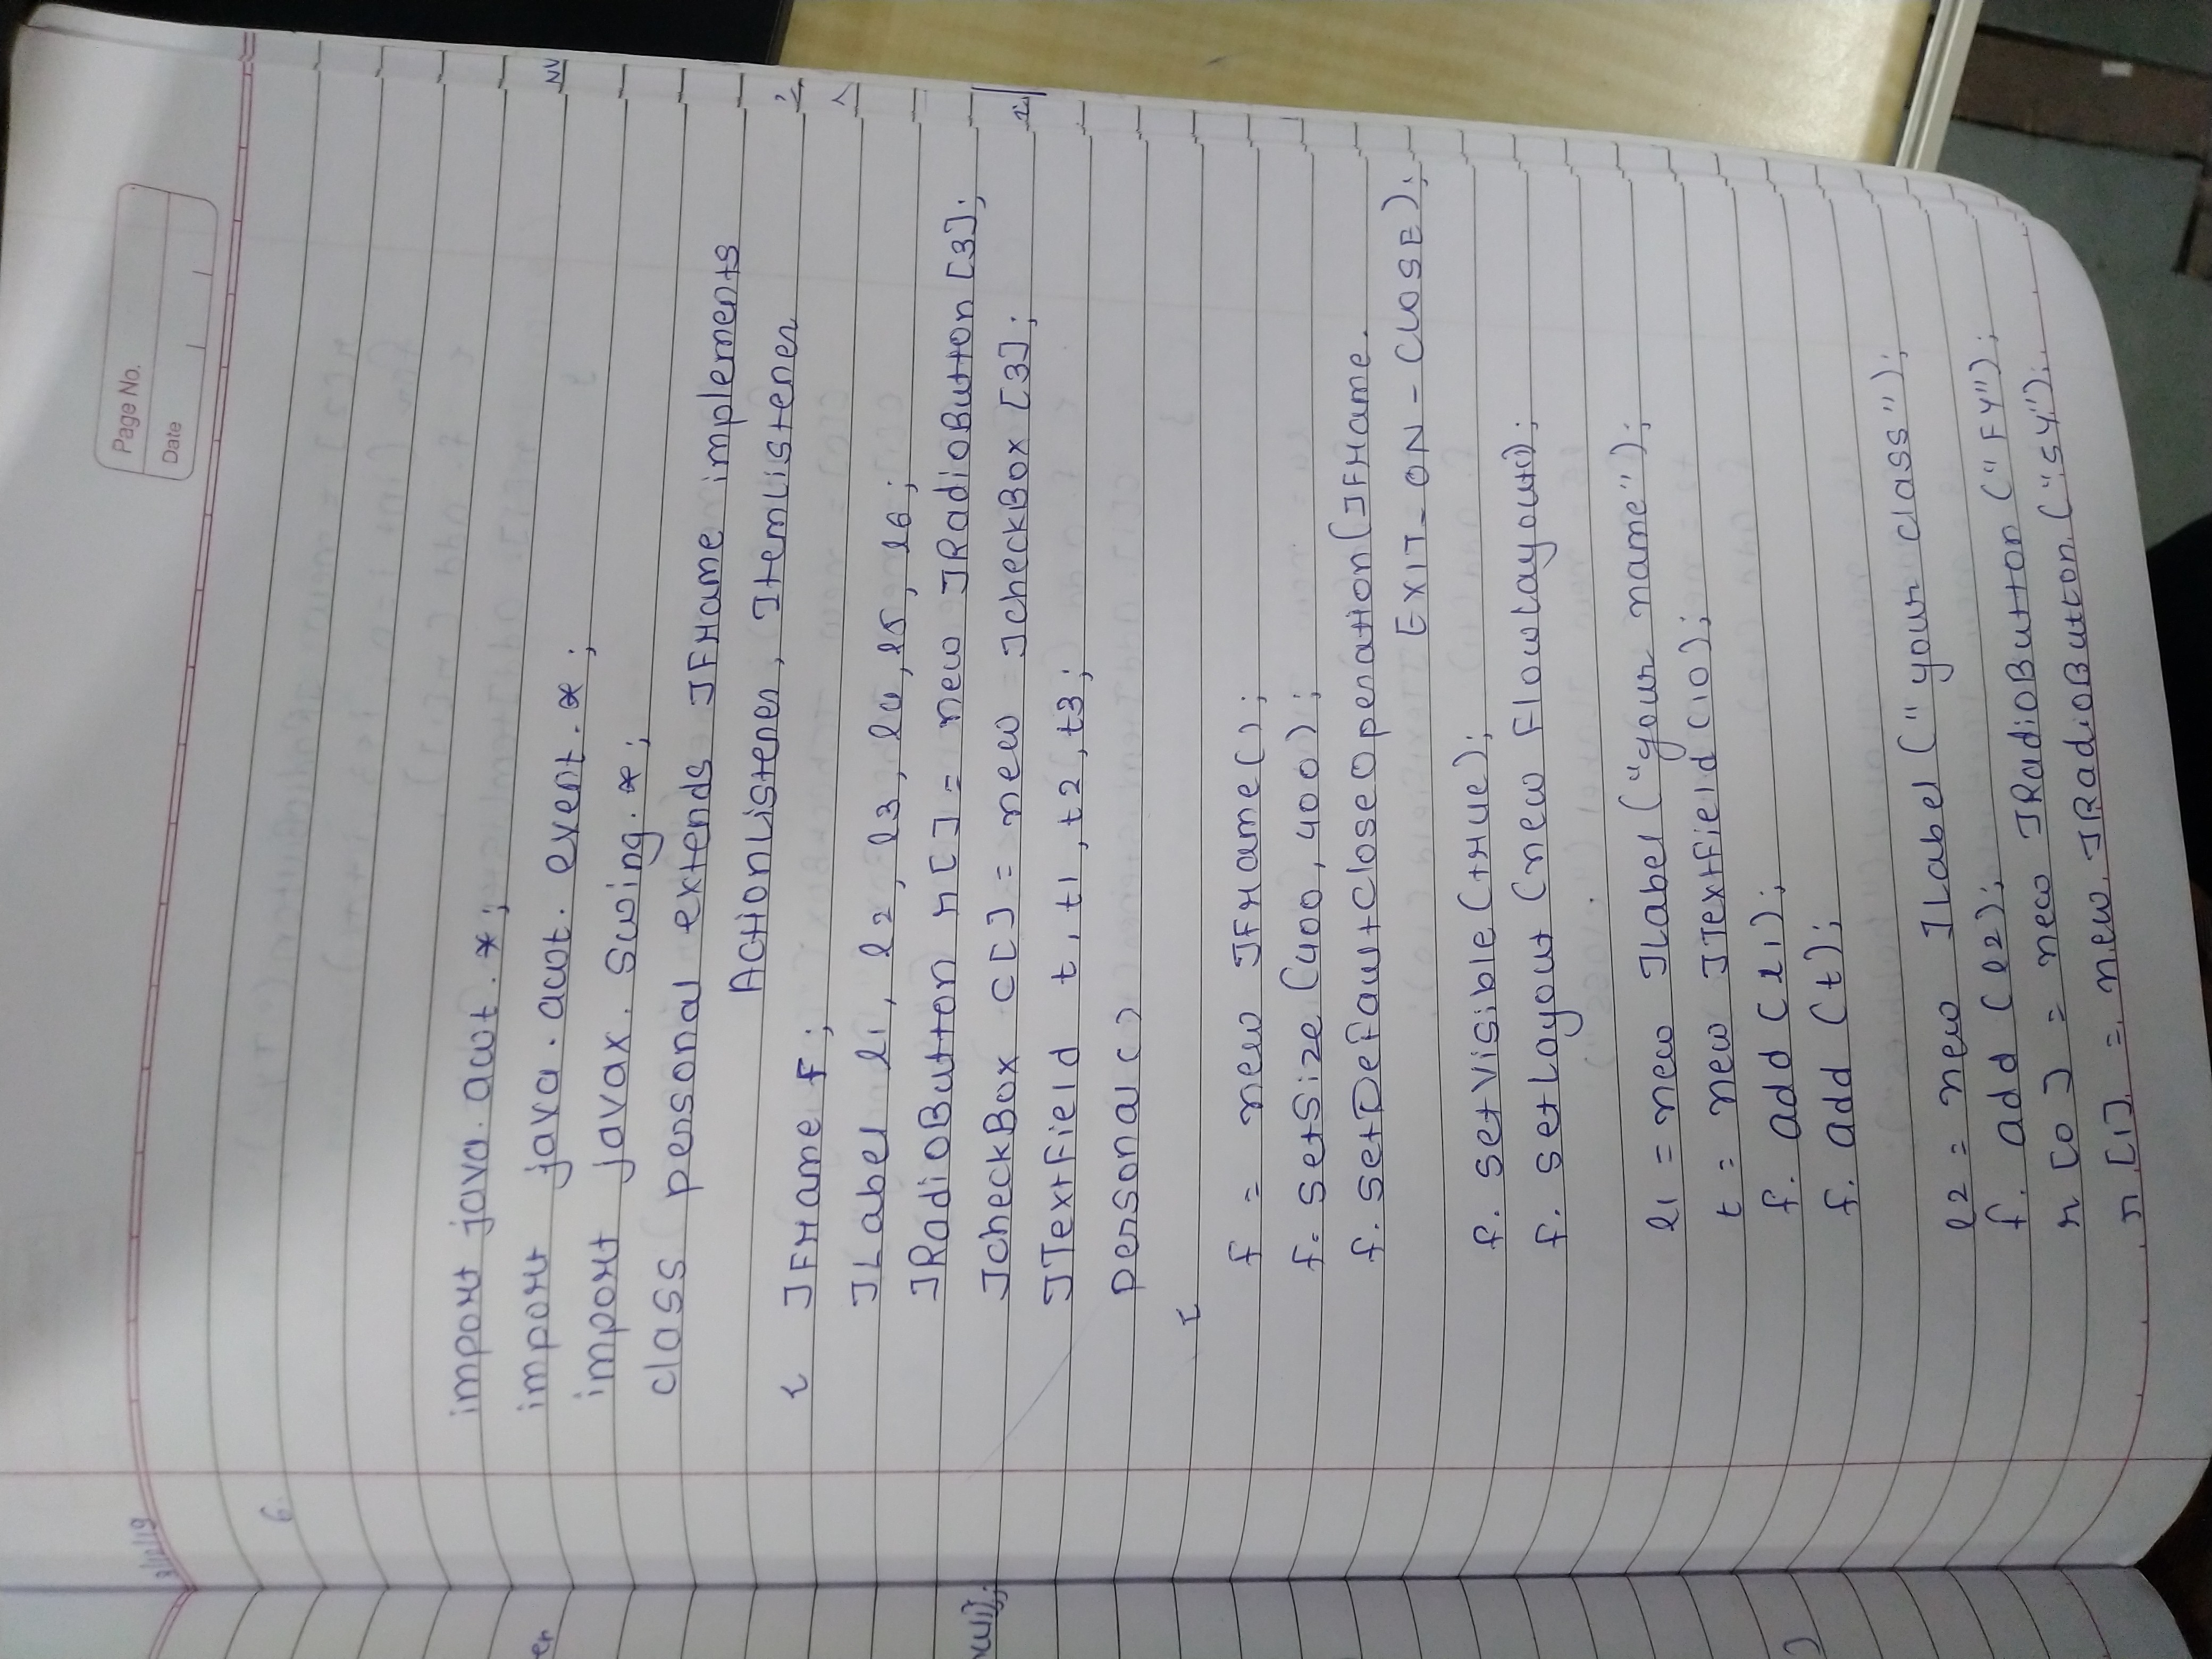 Page No.
Date
8/10/19
6.
import java.awt.*;
import java.awt.event.*;
import javax.swing.*;
class personal extends JFrame implements
ActionListener, ItemListener
{ JFrame f;
JLabel l1, l2, l3, l4, l5, l6;
JRadioButton r[] = new JRadioButton[3];
JcheckBox c[] = new JcheckBox [3];
JTextField t, t1, t2, t3;
personal()
{
f = new JFrame();
f.setSize(400, 400);
f.setDefaultCloseOperation(JFrame.
EXIT_ON_CLOSE);
f.setVisible(true);
f.setLayout(new FlowLayout());
l1 = new JLabel("your name");
t = new JTextField(10);
f.add(l1);
f.add(t);
l2 = new JLabel("your class");
f.add(l2);
r[0] = new JRadioButton("FY");
r[1] = new JRadioButton("SY");